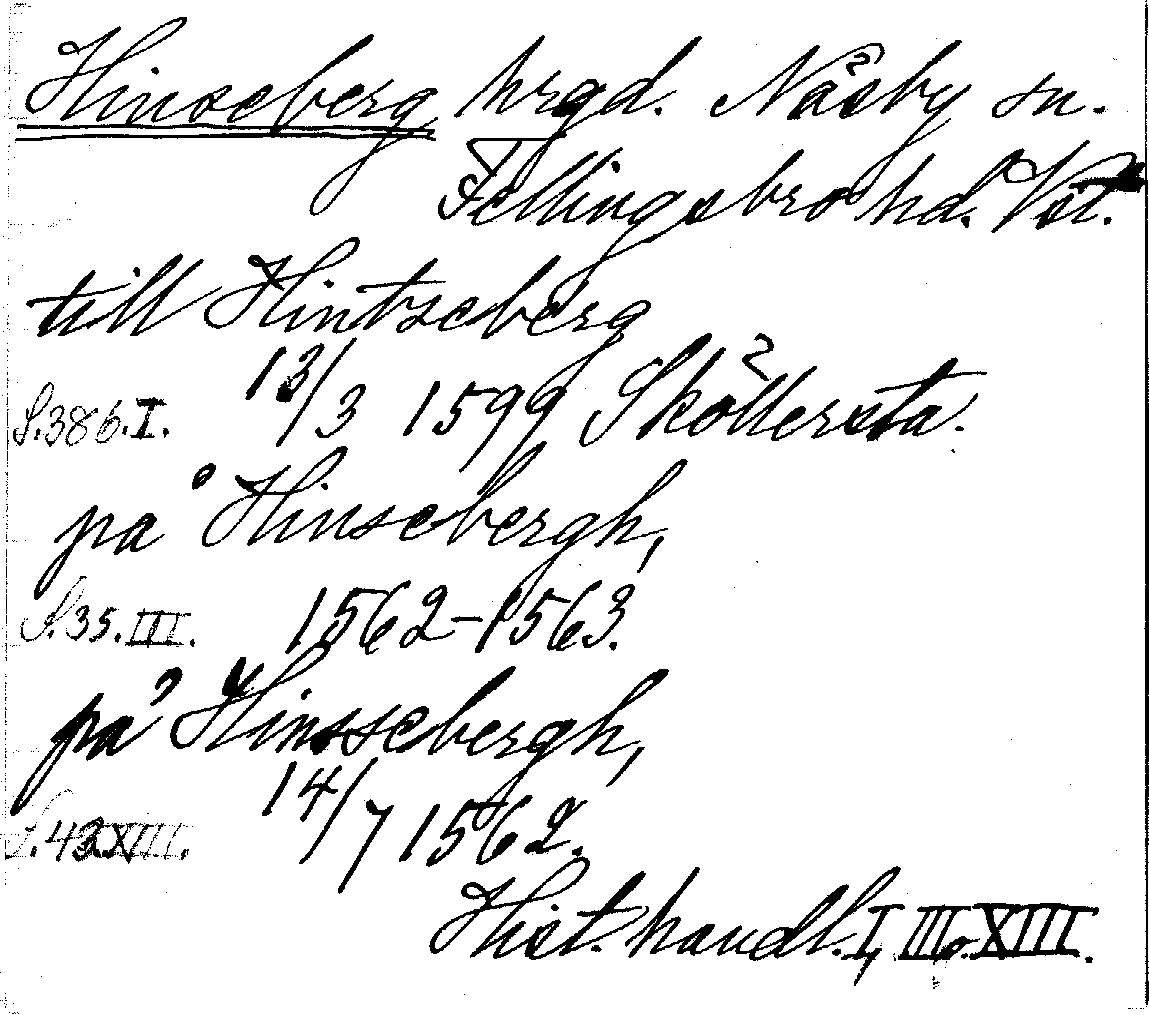 Hinseberg hrgd. Näsby sn.
Fellingsbro hd. Vst.
till Hintzeberg
S.386.I. 13/3 1599 Sköllersta.
på Hinsebergh,
S.35.III. 1562-1563.
på Hinssebergh,
S.43XIII. 14/7 1562.
Hist. handl. I, III o. XIII.